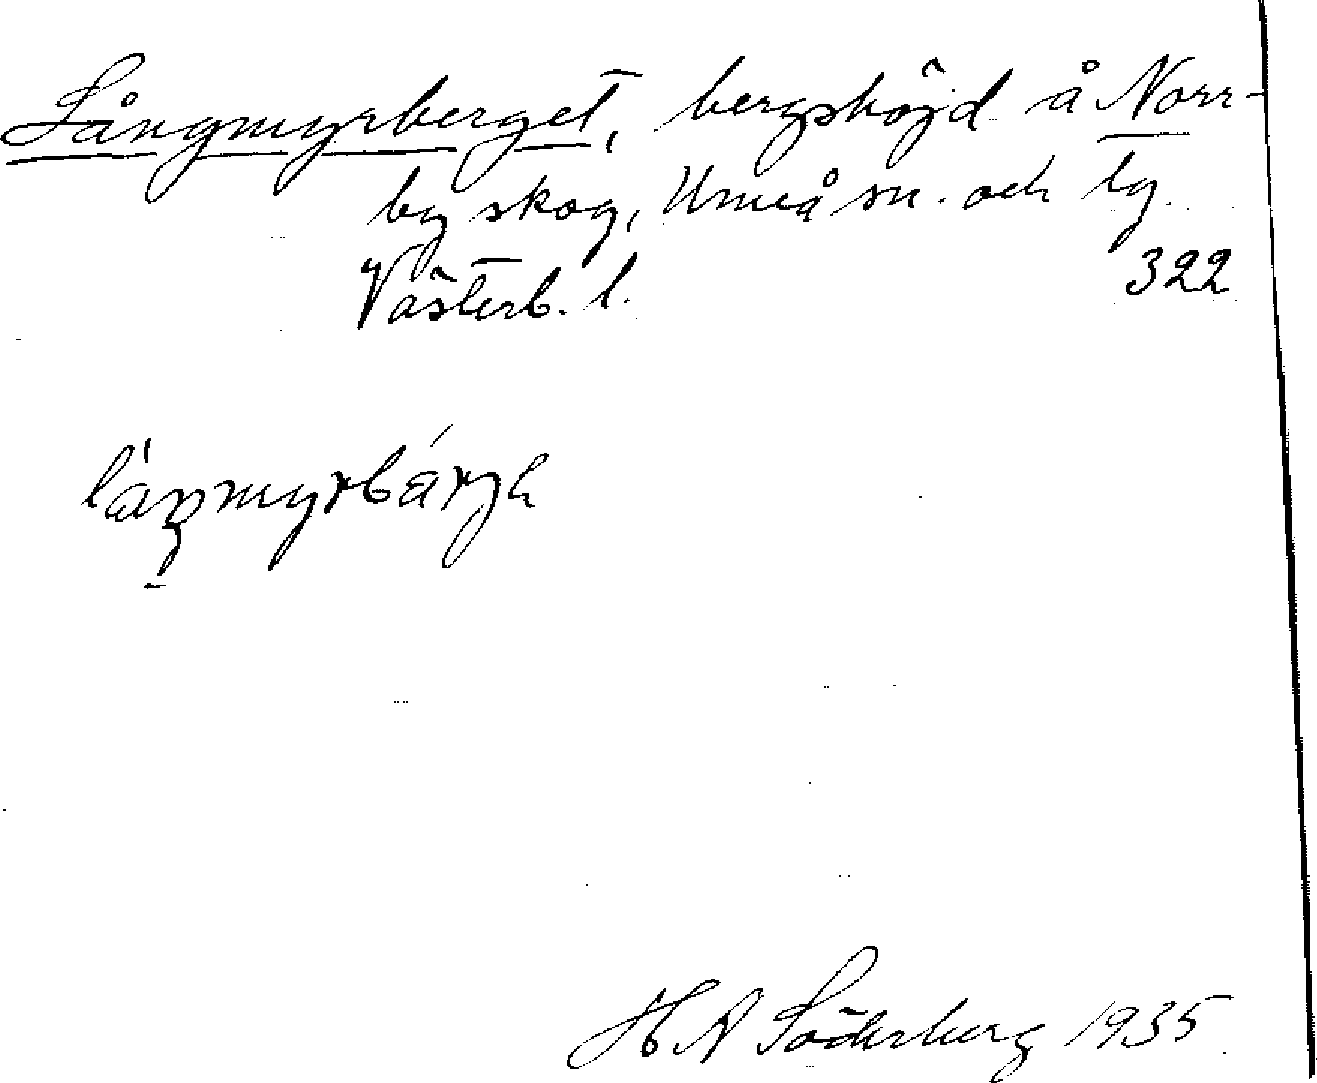 Långmyrberget, bergshöjd å Norr-
by skog, Umeå sn. och tg.
Västerb. l. 322
H A Söderberg 1935